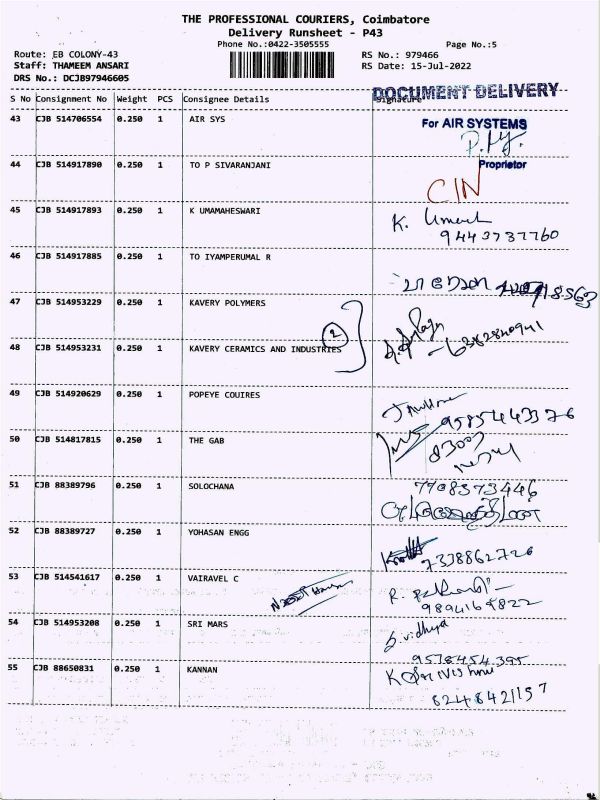 THE PROFESSIONAL COURIERS, Coimbatore
Delivery Runsheet - P43
Phone No.:0422-3505555
Page No.:5
Route: EB COLONY-43
RS No.: 979466
Staff: THAMEEM ANSARI
RS Date: 15-Jul-2022
DRS No.: DCJB97946605
DOCUMENT DELIVERY
S No Consignment No Weight PCS Consignee Details Signature
43 CJB 514706554 0.250 1 AIR SYS
For AIR SYSTEMS
Proprietor
44 CJB 514917890 0.250 1 TO P SIVARANJANI
CIN
45 CJB 514917893 0.250 1 K UMAMAHESWARI
K.
9443737760
46 CJB 514917885 0.250 1 TO IYAMPERUMAL R
47 CJB 514953229 0.250 1 KAVERY POLYMERS
2
6382840941
48 CJB 514953231 0.250 1 KAVERY CERAMICS AND INDUSTRIES
49 CJB 514920629 0.250 1 POPEYE COUIRES
9585443376
50 CJB 514817815 0.250 1 THE GAB
51 CJB 88389796 0.250 1 SOLOCHANA
7708373446
52 CJB 88389727 0.250 1 YOHASAN ENGG
7338862726
53 CJB 514541617 0.250 1 VAIRAVEL C
R.
9894169822
54 CJB 514953208 0.250 1 SRI MARS
S. vidhya
9578454395
55 CJB 88650831 0.250 1 KANNAN
8248421157